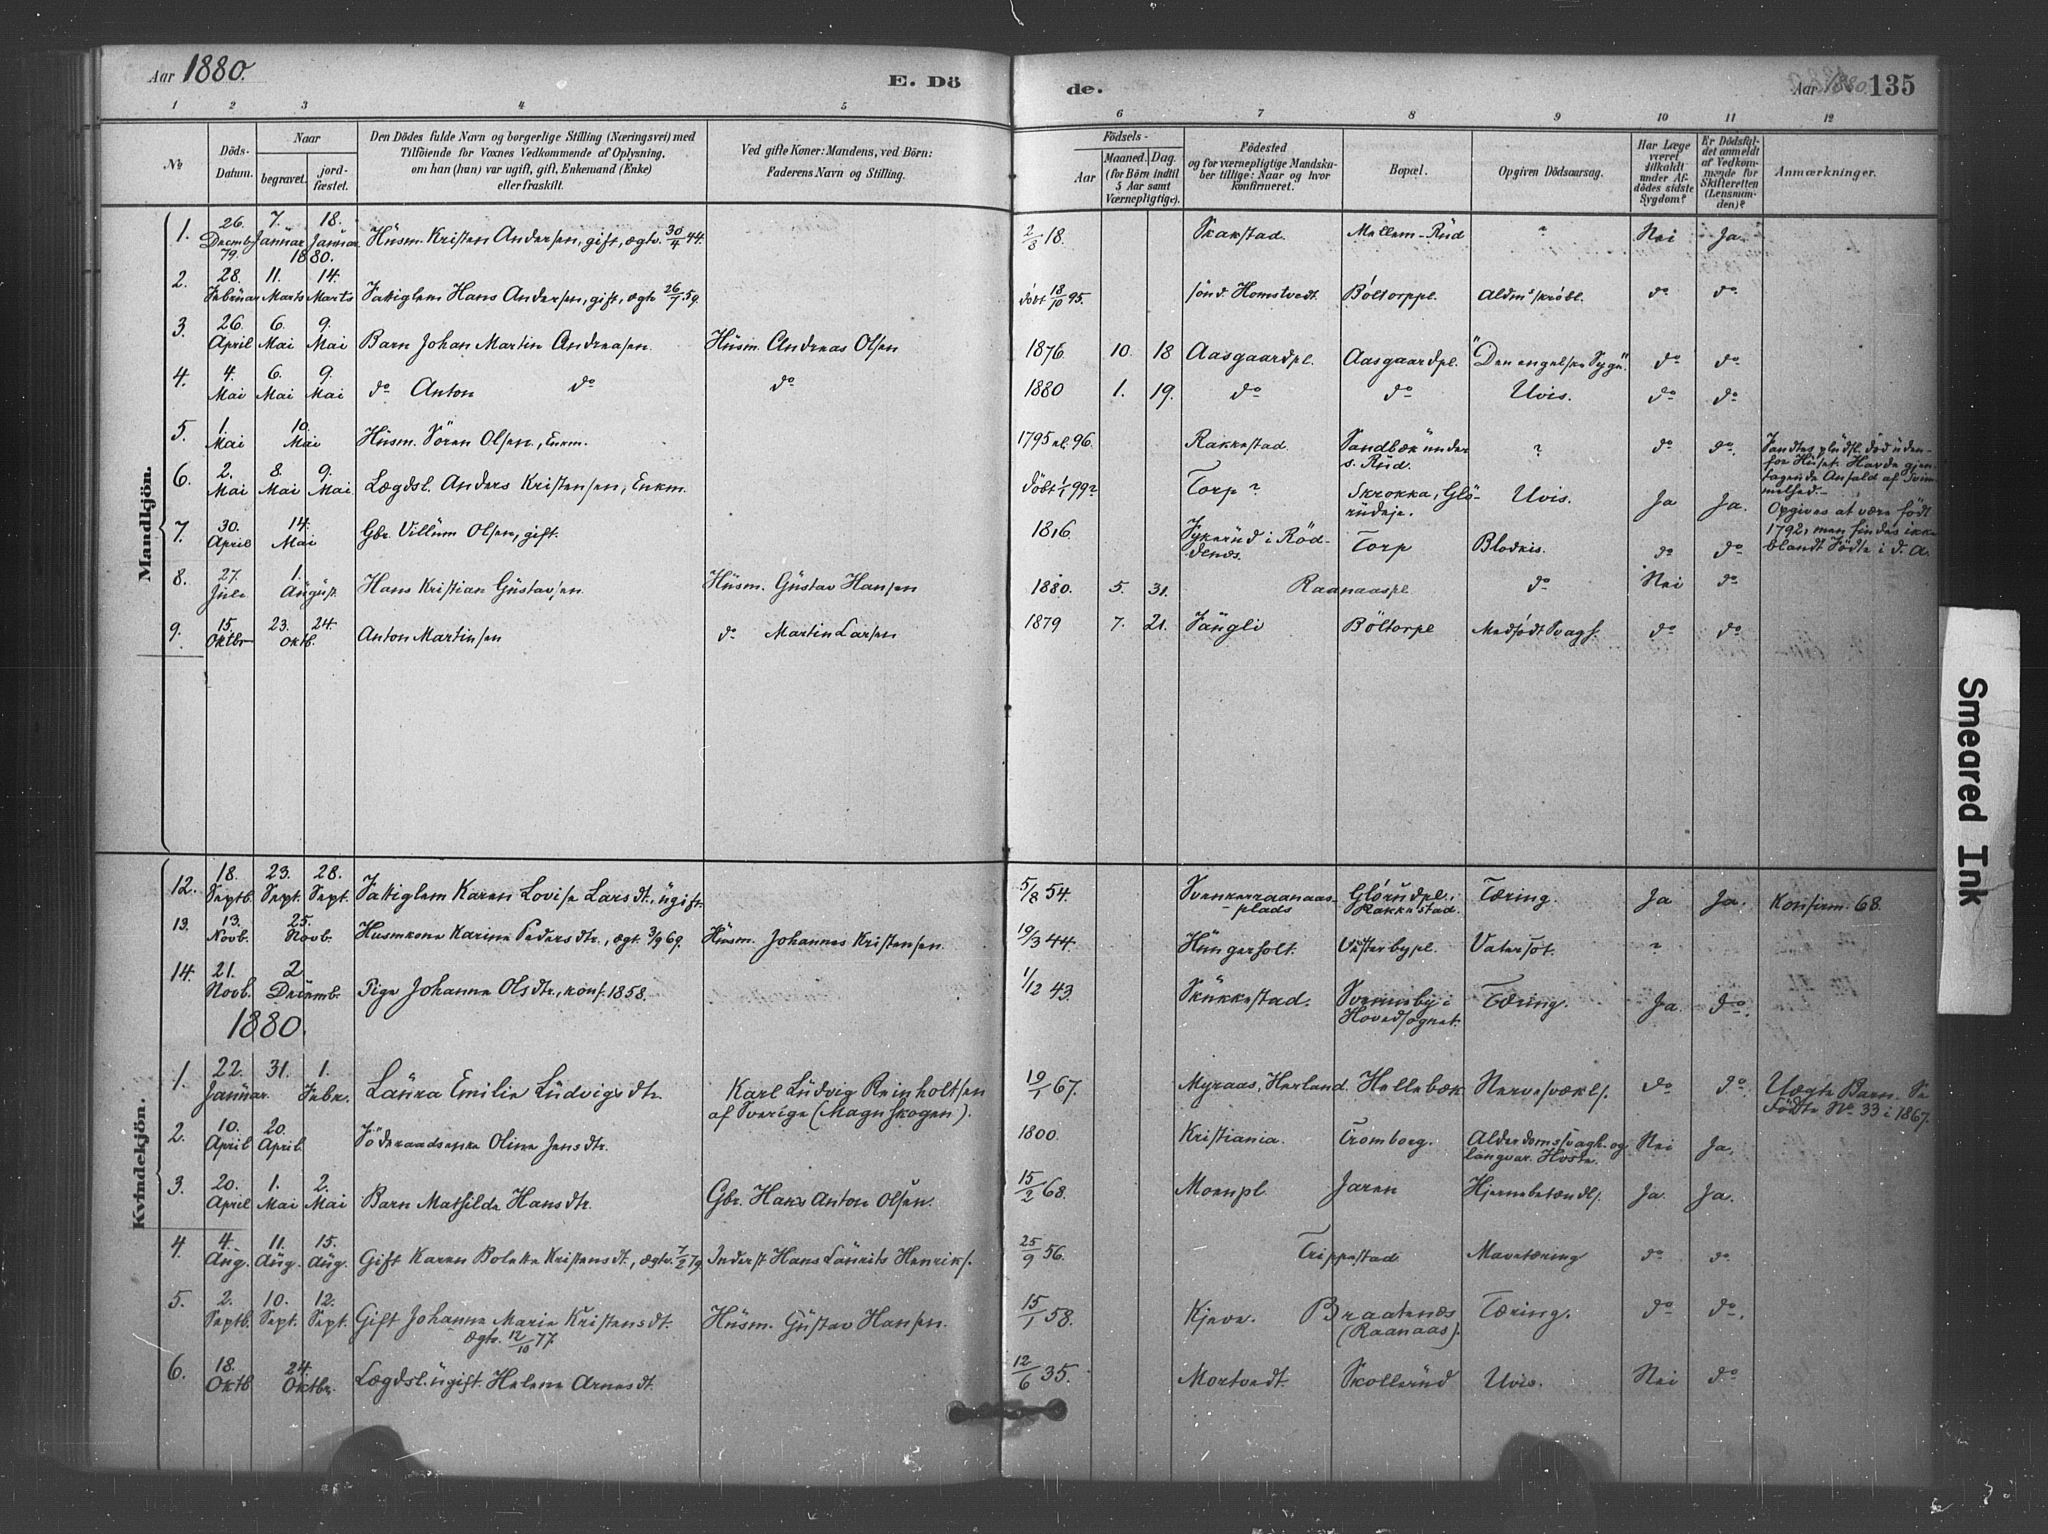 Aar 1880.
E. Dö
1 2 3 4 5
No
Döds-
Datum.
Naar
begravet. jord-
fæstet.
Den Dödes fulde Navn og borgerlige Stilling (Næringsvei) med
Tilföiende for Voxnes Vedkommende af Oplysning,
om han (hun) var ugift, gift, Enkemand (Enke)
eller fraskilt.
Ved gifte Koner: Mandens, ved Börn:
Faderens Navn og Stilling.
Mandkjön.
1. 26. Decmbr 79. 7. Januar 18. Januar 1880. Husm. Kristen Andersen, gift, ægtv. 30/4 44.
2. 28. Februar 11. Marts 14. Marts Fattiglem Hans Andersen, gift, ægtv 26/7 59.
3. 26. April 6. Mai 9. Mai Barn Johan Martin Andreasen. Husm. Andreas Olsen
4. 4. Mai 6. Mai 9. Mai do Anton do do
5. 1. Mai 10. Mai Husm. Sören Olsen, Enkm.
6. 2. Mai 8. Mai 9. Mai Lægdsl. Anders Kristensen, Enkm.
7. 30. April 14. Mai Gbr. Villum Olsen, gift.
8. 27. Juli 1. August Hans Kristian Gustavsen. Husm. Gustav Hansen
9. 15. Oktbr 23. 24. Oktb. Anton Martinsen do Martin Larsen
12. 18. Septb. 23. Sept. 28. Sept. Fattiglem Karen Lovise Larsdt., ugift.
13. 13. Novb. 25. Novb. Husmkone Karine Pedersdtr., ægt. 3/9 69. Husm. Johannes Kristensen
14. 21. Novb. 2 Decemb. Pige Johanne Olsdtr., konf. 1858.
1880.
Kvindekjön.
1. 22. Januar 31. 1. Febr. Laura Emilie Ludvigsdtr. Karl Ludvig Reinholtsen
af Sverige (Magnskogen).
2. 10. April 20. April Oline Jensdtr.
3. 20. April 1. Mai 2. Mai Barn Mathilde Hansdtr. Gbr. Hans Anton Olsen.
4. 4. Aug. 11. Aug. 15. Aug. Gift Karen Bolette Kristensdt., ægtv. 7/2 79 Inderst Hans Laurits Henriks.
5. 2. Septb. 10. Sept. 12. Sept. Gift Johanne Marie Kristensdt. Husm. Gustav Hansen.
ægtv. 12/10 77.
6. 18. Oktb 24. Oktbr. Lægdsl. ugift Helene Arnesdt.
de.
Aar 1880. 135
6 7 8 9 10 11 12
Födsels-
Aar Maaned. Dag.
(for Börn indtil
5 Aar samt
Værnepligtige).
Födested
og for værnepligtige Mandsku-
ber tillige: Naar og hvor
konfirmeret.
Bopæl.
Opgiven Dödsaarsag.
Har Læge
været
tilkaldt
under Af-
dödes sidste
Sygdom?
Er Dödsfal-
det anmeldt
af Vedkom-
mende for
Skifteretten
(Lensman-
den)?
Anmærkninger.
2/8 18. Skakstad. Mellem-Rud ? Nei Ja.
döbt 18/10 95. sönd. Homstvedt. Böltorppl. Aldms skröbl. do do
1876 10. 18 Aasgaardpl. Aasgaardpl. "Den engelske Syge". do do
1880 1. 19. do do Uvis. do do
1795 el. 96. Rakkestad. Sandbæk under
s. Rud. ? do do. Fandtes pludsl. död uden-
for Huset. Havde gjen-
tagende Anfald af Svim-
melhed.
Döbt 1/1 99? Torp ? Skrokka, Glö-
rudeje. Uvis. Ja Ja. Opgives at være födt
1792, men findes ikke
blandt Födte i d. A.
1816 Fykerud i Röd-
denes. Torp Blodkis. do do
1880. 5. 31. Raanaaspl do Nei do
1879 7. 21. Sängli Böltorpe Medfödt Svagh. do do
5/8 54. Svenkerraanaas-
plads Glörudpl. i
Rakkestad. Tæring. Ja Ja. Konfirm. 68.
19/3 44. Hungerholt. Vesterbypl. Vatersot. ?
1/12 43. Skukkestad. i
Hovedsognet. Tæring. Ja. do.
19/1 67. Myraas, Herland. Hellebæk Nervesvækls. do do. Uægte Barn. Se
Födte No. 33 i 1867.
1800. Kristiania. Tromborg. Alderdomssvagh. og
langvar. Hoste. Nei Ja.
15/2 68. Moenpl Jaren Hjernebetændls. Ja. Ja.
25/9 56. Trippestad Mavetæring do do.
15/1 58. Kjeve. Braatenæs
(Raanaas). Tæring. do do.
12/6 35. Mortvedt. Skollerud Uvis. Nei do
Smeared Ink